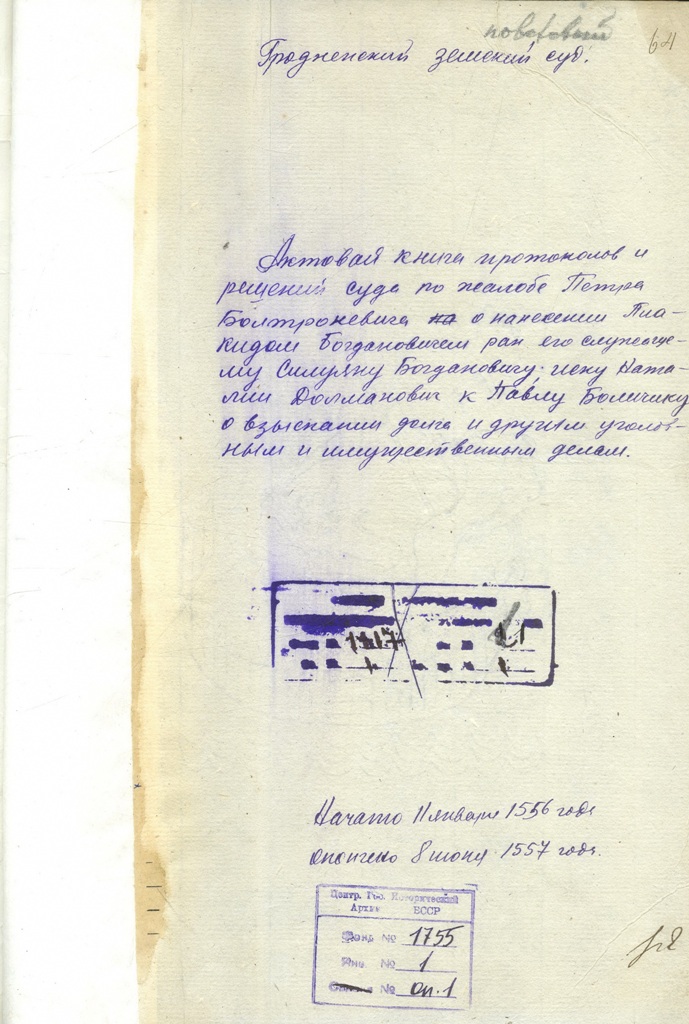 поветовый
64
Гродненский земский суд.
Актовая книга протоколов и
решений суда по жалобе Петра
Болтроневича на о нанесении Пла-
кидом Богдановичем ран его служаще-
му Симуяну Богдановичу. иску Ната-
лии Долманович к Павлу Боличику
о взыскании долга и другим уголов-
ным и имущественным делам.
Начато 11 января 1556 года
окончено 8 июня 1557 года.
Центр. Гос. Исторический
Архив БССР
Фонд № 1755
№ 1
№ оп.1